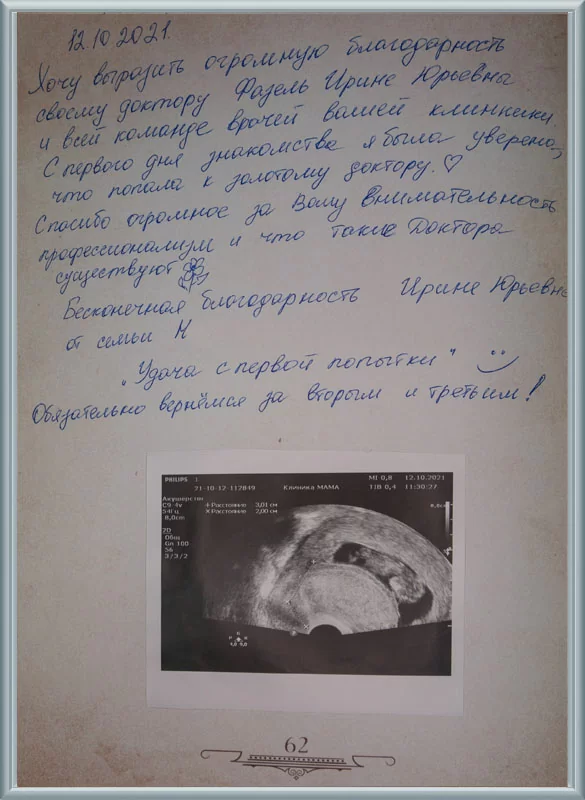 12.10.2021.
Хочу выразить огромную благодарность
своему доктору Фазель Ирине Юрьевны
и всей команде врачей вашей клинники.
С первого дня знакомства я была уверена,
что попала к золотому доктору. ♡
Спасибо огромное за Вашу внимательность
профессионализм и что такие Доктора
существуют
Бесконечная благодарность Ирине Юрьевне
от семьи Н
"Удача с первой попытки"
Обязательно вернёмся за вторым и третьим!
PHILIPS
MI 0,8 12.10.2021
21-10-12-112849 Клиника МАМА TIB 0,4 11:30:27
Акушерстви
C9 4v + Расстояние 3,01 см
54Гц × Расстояние 2,00 см
8,0cm
2D
Общ
Gn 100
56
3/3/2
62